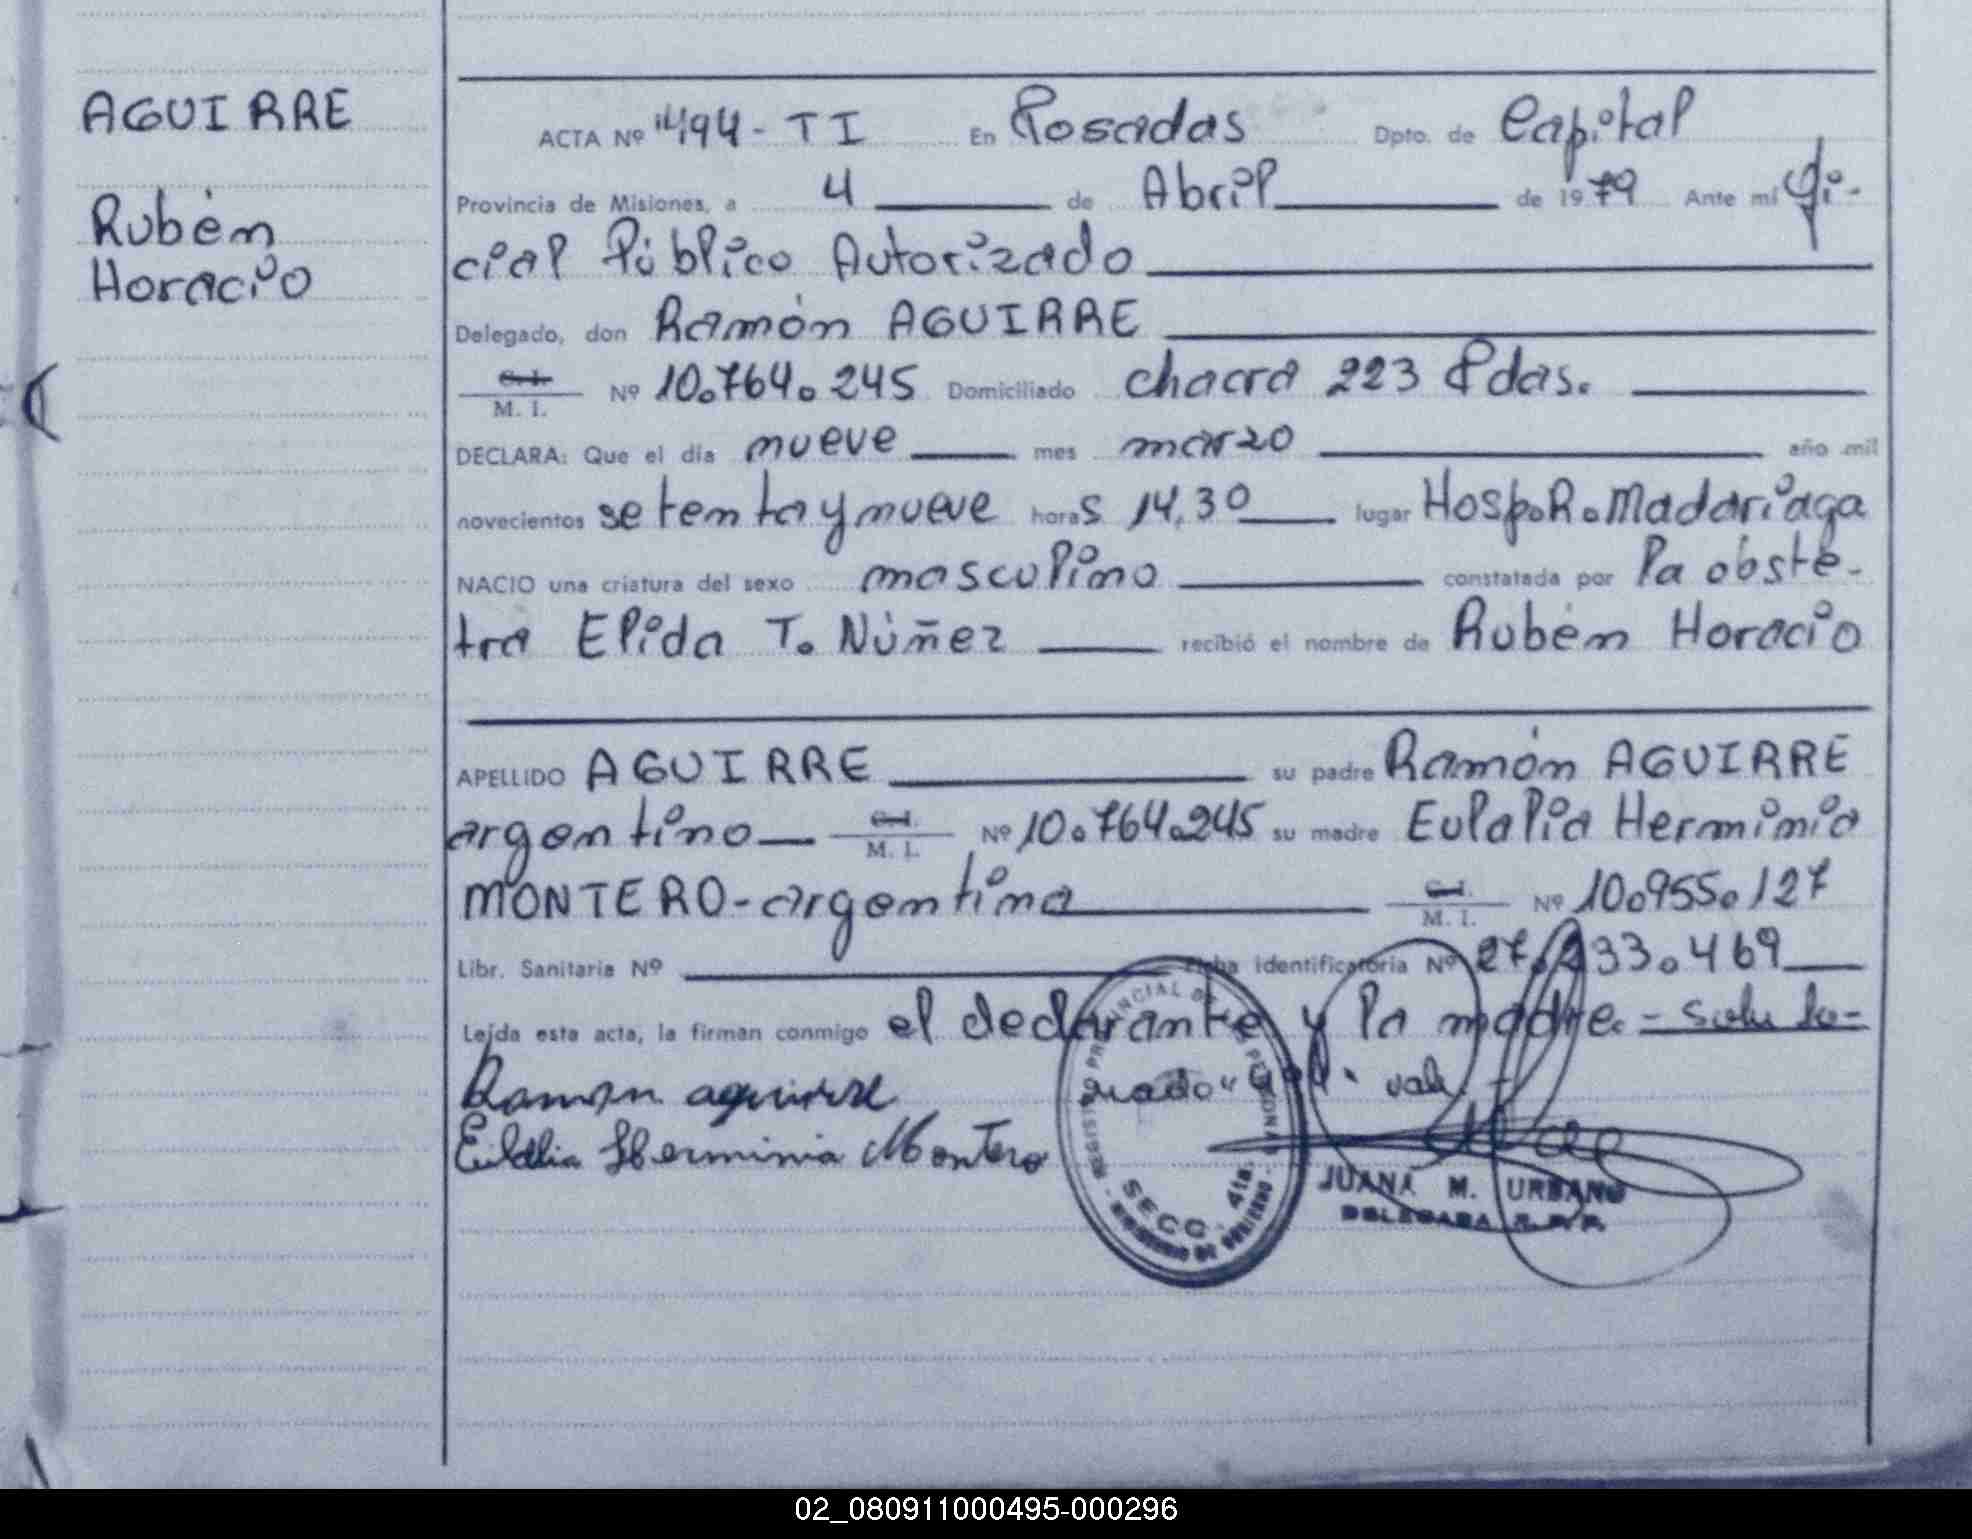 AGUIRRE
Rubén
Horacio
ACTA Nº 494 - TI En Posadas Dpto. de Capital
Provincia de Misiones, a 4 de Abril de 1979 Ante mí Ofi-
cial Público Autorizado
Delegado, don Ramón AGUIRRE
C.I. M. I. Nº 10.764.245 Domiciliado chacra 223 Pdas.
DECLARA: Que el día nueve mes marzo año mil
novecientos setenta y nueve horas 14,30 lugar Hosp.R.Madariaga
NACIO una criatura del sexo masculino constatada por la obste-
tra Elida T. Núñez recibió el nombre de Rubén Horacio
APELLIDO AGUIRRE su padre Ramón AGUIRRE
argentino C.I. M. I. Nº 10.764.245 su madre Eulalia Herminia
MONTERO-argentina C.I. M. I. Nº 10.955.127
Libr. Sanitaria Nº Ficha identificatoria Nº 27.233.469
Leída esta acta, la firman conmigo el declarante y la madre.-
Ramon aguirre
Eulalia Herminia Montero
REGISTRO PROVINCIAL DE LAS PERSONAS
SECC. 4ta.
MINISTERIO DE GOBIERNO
JUANA M. URBANO
DELEGADA R.P.P.
02_080911000495-000296